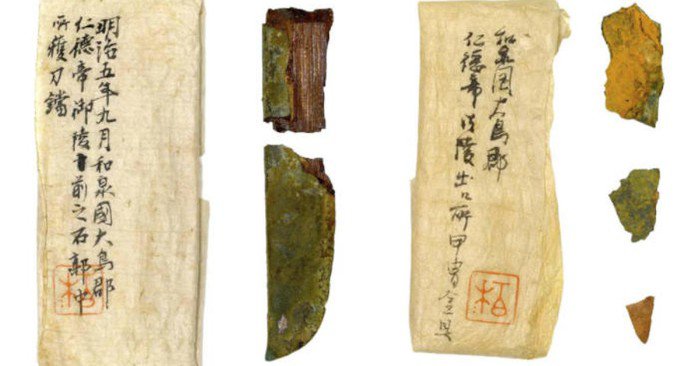 明治五年九月和泉國大鳥郡
仁德帝御陵前之石郭中
所獲刀鐺
柏
和泉国大鳥郡
仁德帝御陵出口所甲冑金具
柏